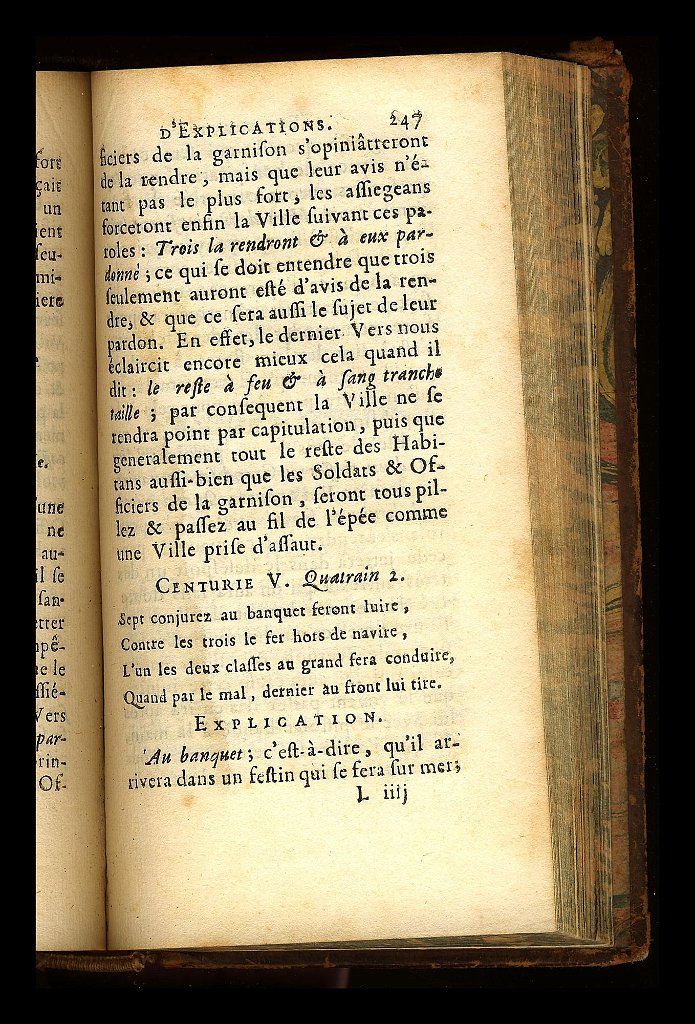 D'EXPLICATIONS. 247
ficiers de la garniſon s'opiniâtreront
de la rendre, mais que leur avis n'é-
tant pas le plus fort, les aſſiegeans
forceront enfin la Ville ſuivant ces pa-
roles : Trois la rendront & à eux par-
donné ; ce qui ſe doit entendre que trois
ſeulement auront eſté d'avis de la ren-
dre, & que ce ſera auſſi le ſujet de leur
pardon. En effet, le dernier Vers nous
éclaircit encore mieux cela quand il
dit : le reſte à feu & à ſang tranche
taille ; par conſequent la Ville ne ſe
rendra point par capitulation, puis que
generalement tout le reſte des Habi-
tans auſſi-bien que les Soldats & Of-
ficiers de la garniſon, ſeront tous pil-
lez & paſſez au fil de l'épée comme
une Ville priſe d'aſſaut.
CENTURIE V. Quatrain 2.
Sept conjurez au banquet feront luire,
Contre les trois le fer hors de navire,
L'un les deux claſſes au grand fera conduire,
Quand par le mal, dernier au front lui tire.
EXPLICATION.
Au banquet ; c'eſt-à-dire, qu'il ar-
rivera dans un feſtin qui ſe fera ſur mer;
L iiij
fort
çait
un
ient
ſeu-
mi-
iere
e.
une
ne
au-
il ſe
ſan-
etter
mpê-
re le
ſſié-
Vers
par-
rin-
Of-